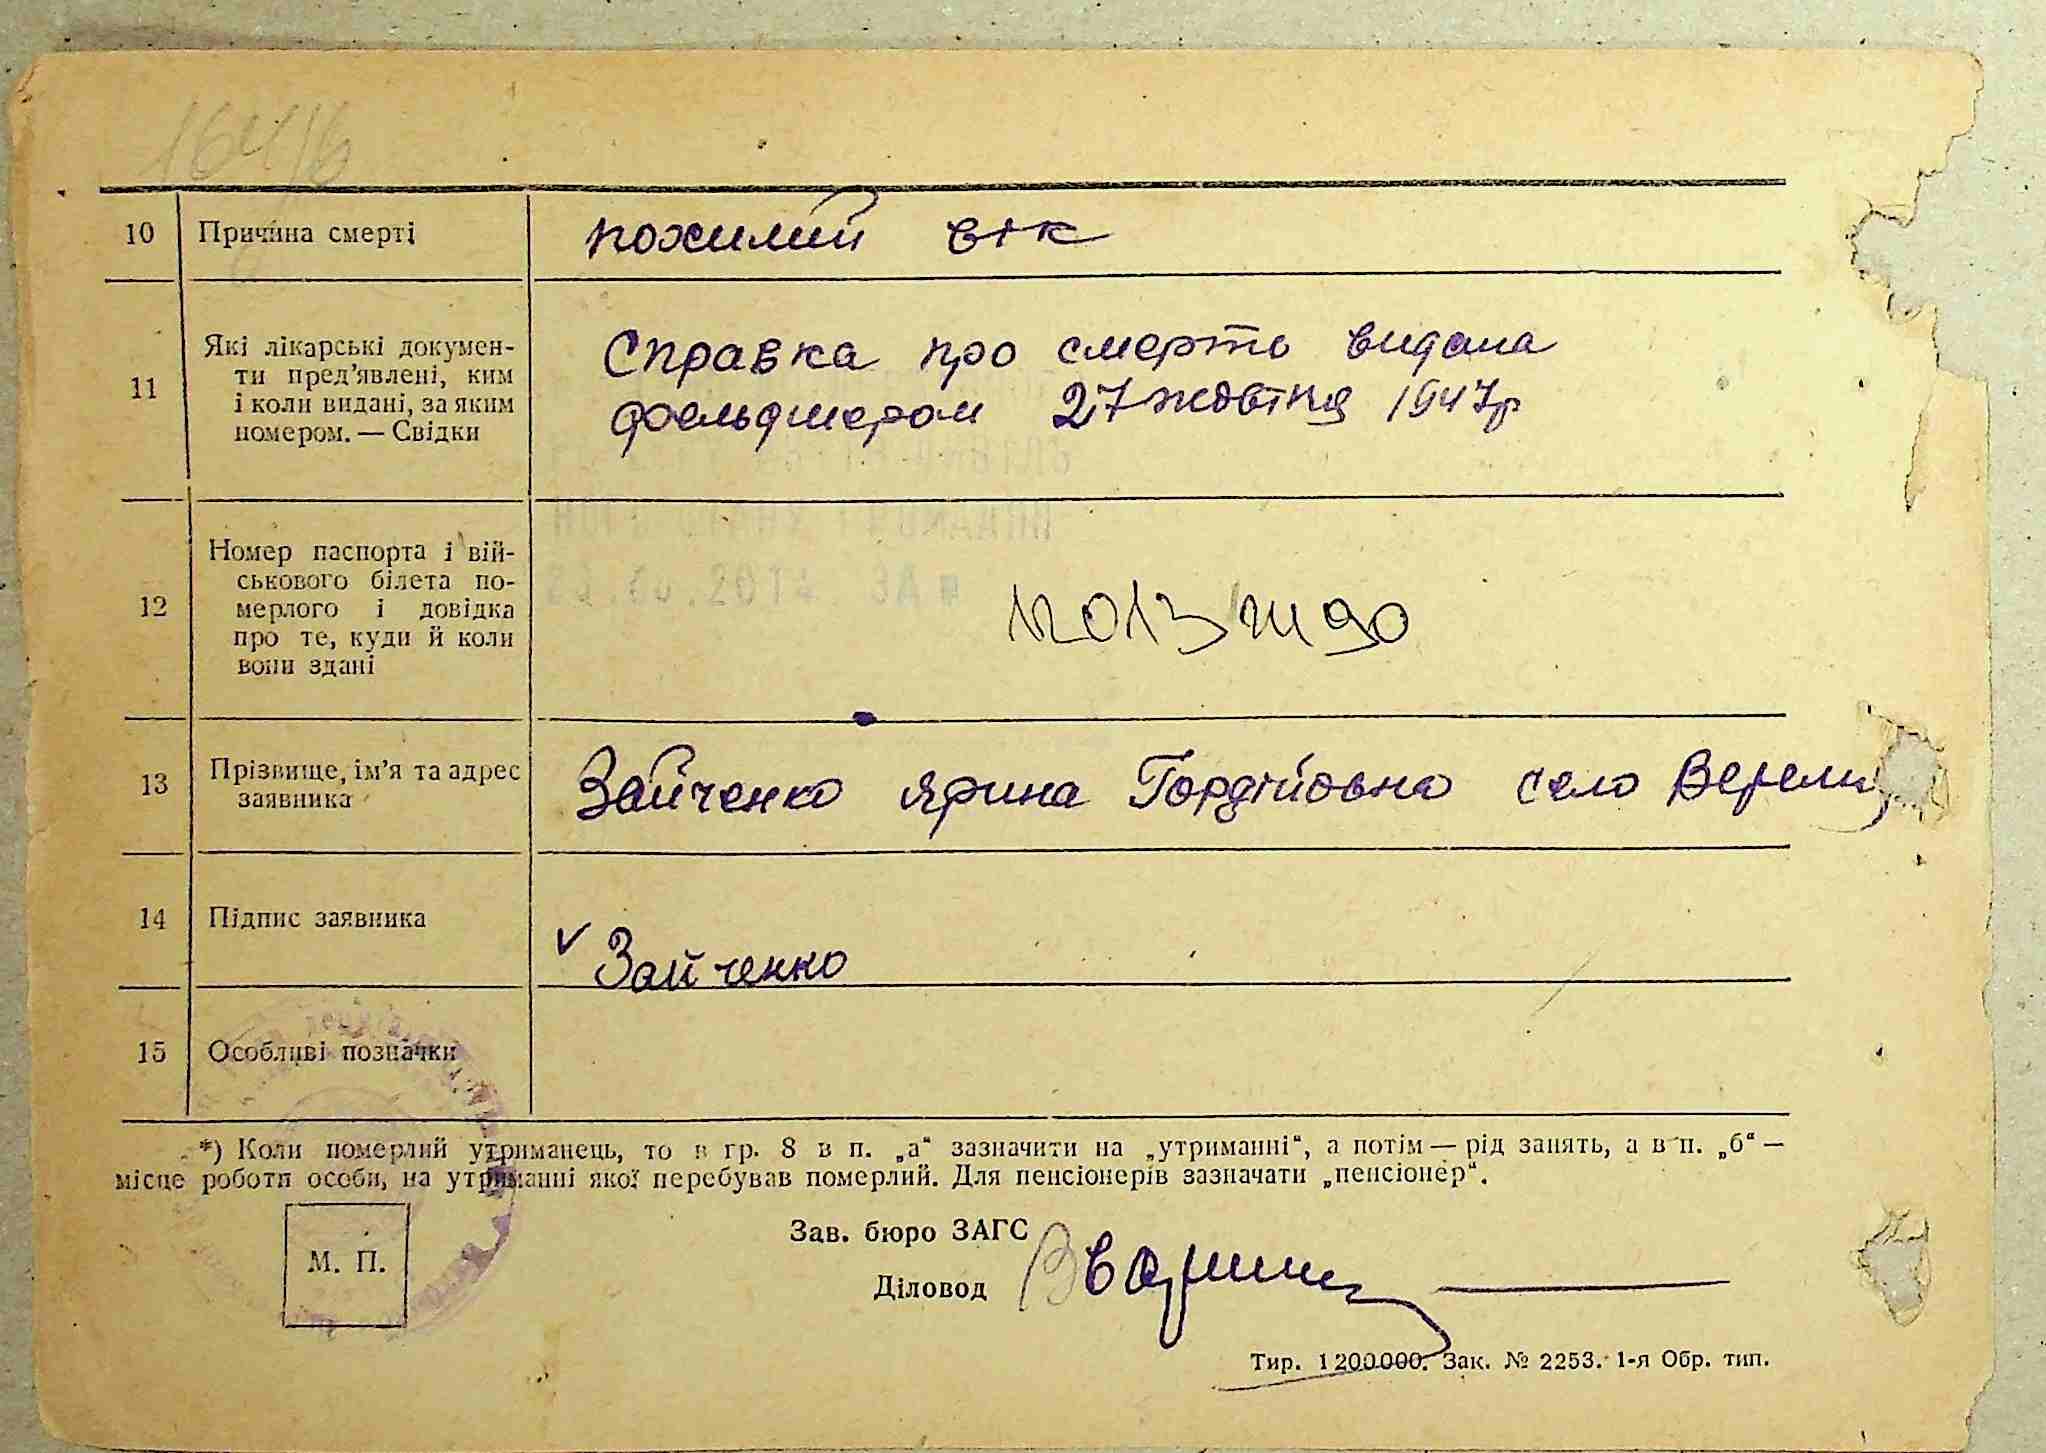 164/6
10 Причина смерті похилий вік
11 Які лікарські докумен-
ти пред’явлені, ким
і коли видані, за яким
номером. — Свідки
Справка про смерть видана
фельдшером 27 жовтня 1947р
12 Номер паспорта і вій-
ськового білета по-
мерлого і довідка
про те, куди й коли
вони здані
13 Прізвище, ім’я та адрес
заявника
Зайченко Ярина Гордійовна село
14 Підпис заявника
v Зайченко
15 Особливі позначки
*) Коли померлий утриманець, то в гр. 8 в п. „а“ зазначити на „утриманні“, а потім — рід занять, а в п. „б“ —
місце роботи особи, на утриманні якої перебував померлий. Для пенсіонерів зазначати „пенсіонер“.
М. П.
Зав. бюро ЗАГС
Діловод
Тир. 1200000. Зак. № 2253. 1-я Обр. тип.